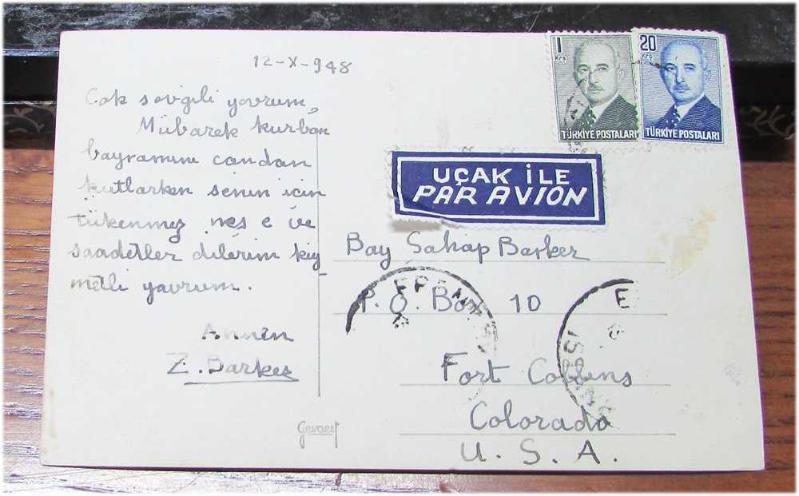 12-X-948
Çok sevgili yavrum,
Mübarek kurban
bayramını candan
kutlarken senin için
tükenmez neş e ve
saadetler dilerim kıy
metli yavrum.
Annen
Z. Barker
Gevaert
1
Krş
20
Krş
TÜRKİYE POSTALARI
TÜRKİYE POSTALARI
UÇAK İLE
PAR AVION
Bay Sahap Barker
P. O. Box 10
Fort Collins
Colorado
U. S. A.